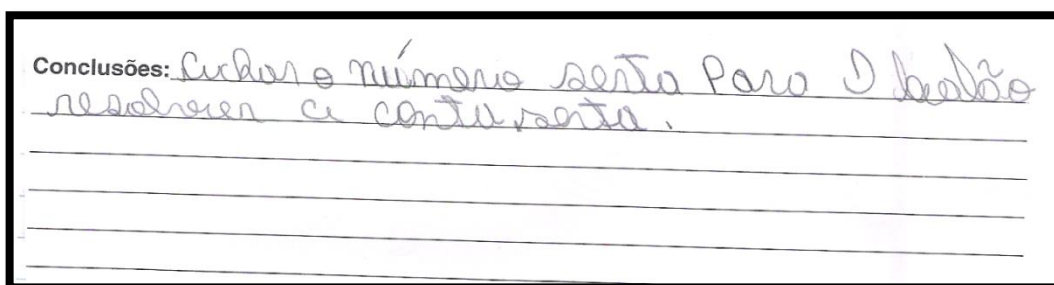 Conclusões: Achar o número serto Para O balão
resolver a conta serta.